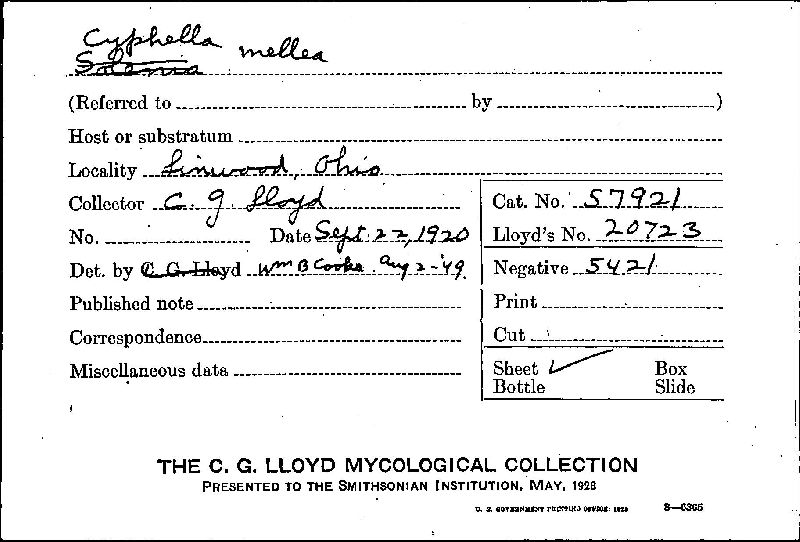 Cyphella
Solenia mellea
(Referred to by )
Host or substratum
Locality Linwood, Ohio
Collector C. G. Lloyd
No. Date Sept. 22, 1920
Det. by C. G. Lloyd Wm B Cooke. Aug 2-'49.
Published note
Correspondence
Miscellaneous data
Cat. No. 57921
Lloyd's No. 20723
Negative 5421
Print
Cut
Sheet ✓ Box
Bottle Slide
THE C. G. LLOYD MYCOLOGICAL COLLECTION
PRESENTED TO THE SMITHSONIAN INSTITUTION, MAY, 1928
U. S. GOVERNMENT PRINTING OFFICE: 1929 8—6366